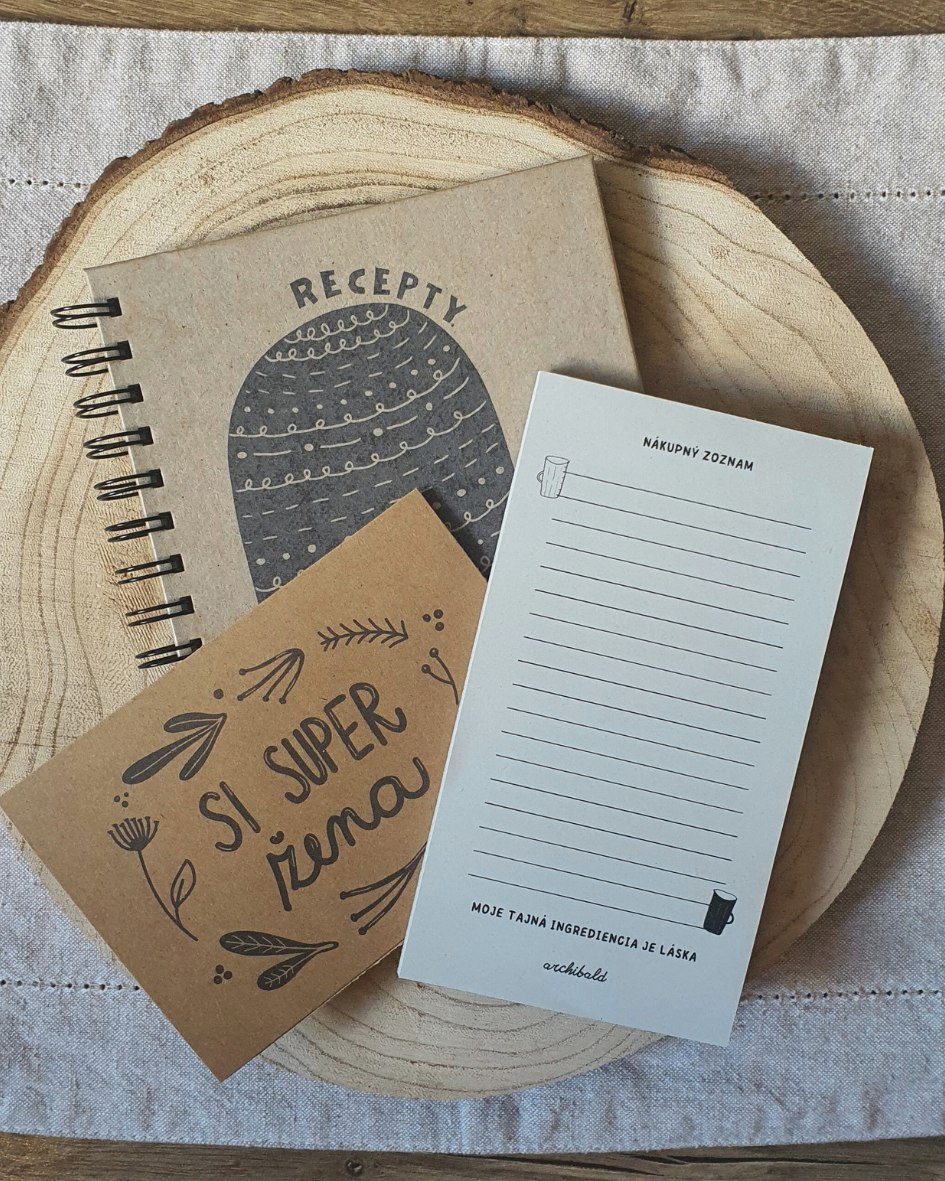 RECEPTY
SI SUPER
žena
NÁKUPNÝ ZOZNAM
MOJE TAJNÁ INGREDIENCIA JE LÁSKA
archibald